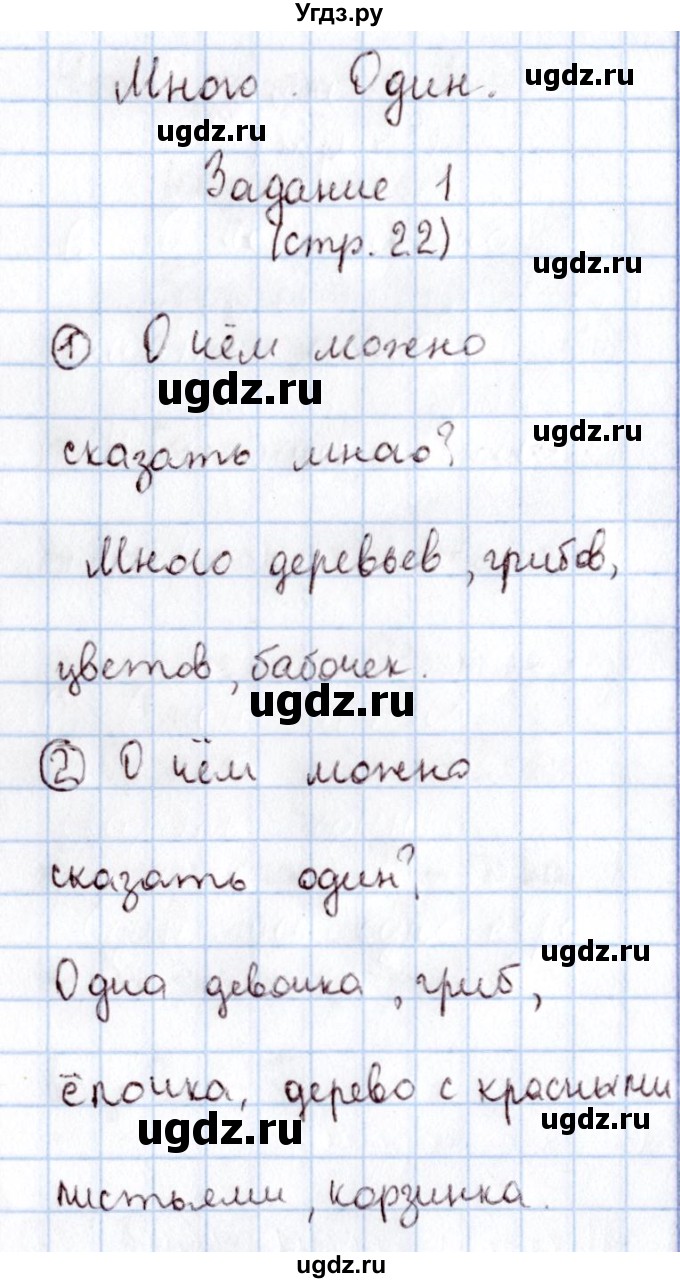 Угдз.ру
Много. Один.
ugdz.ru
ugdz.ru
Задание 1
(стр. 22)
ugdz.ru
① О чём можно
ugdz.ru
ugdz.ru
сказать много?
Много деревьев, грибов,
цветов, бабочек.
ugdz.ru
② О чём можно
сказать один?
ugdz.ru
Одна девочка, гриб,
ёлочка, дерево с красными
ugdz.ru
ugdz.ru
листьями, корзинка.
ugdz.ru